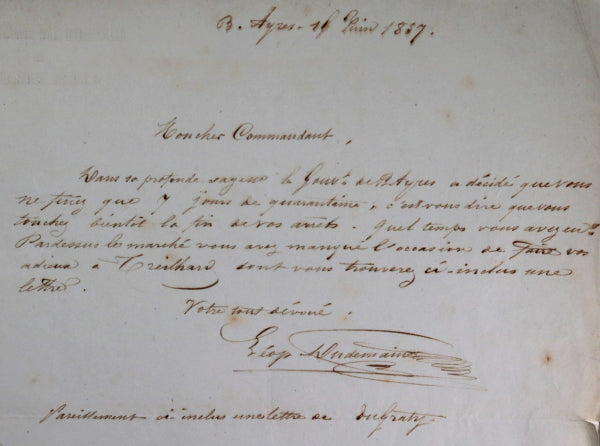 B. Ayres - Juin 1857.
Moncher Commandant,
Dans sa profonde sagesse le Gouvt. de B. Ayres a décidé que vous
ne feriez que 7 jours de quarantaine; c'est vous dire que vous
touchez bientôt la fin de vos arrêts. Quel temps vous avez eu!
Pardessus le marché vous avez manqué l'occasion de faire vos
adieux à Treilhard dont vous trouverez ci-inclus une
lettre.
Votre tout dévoué.
Léop
Pareillement ci inclus une lettre de DuGraty